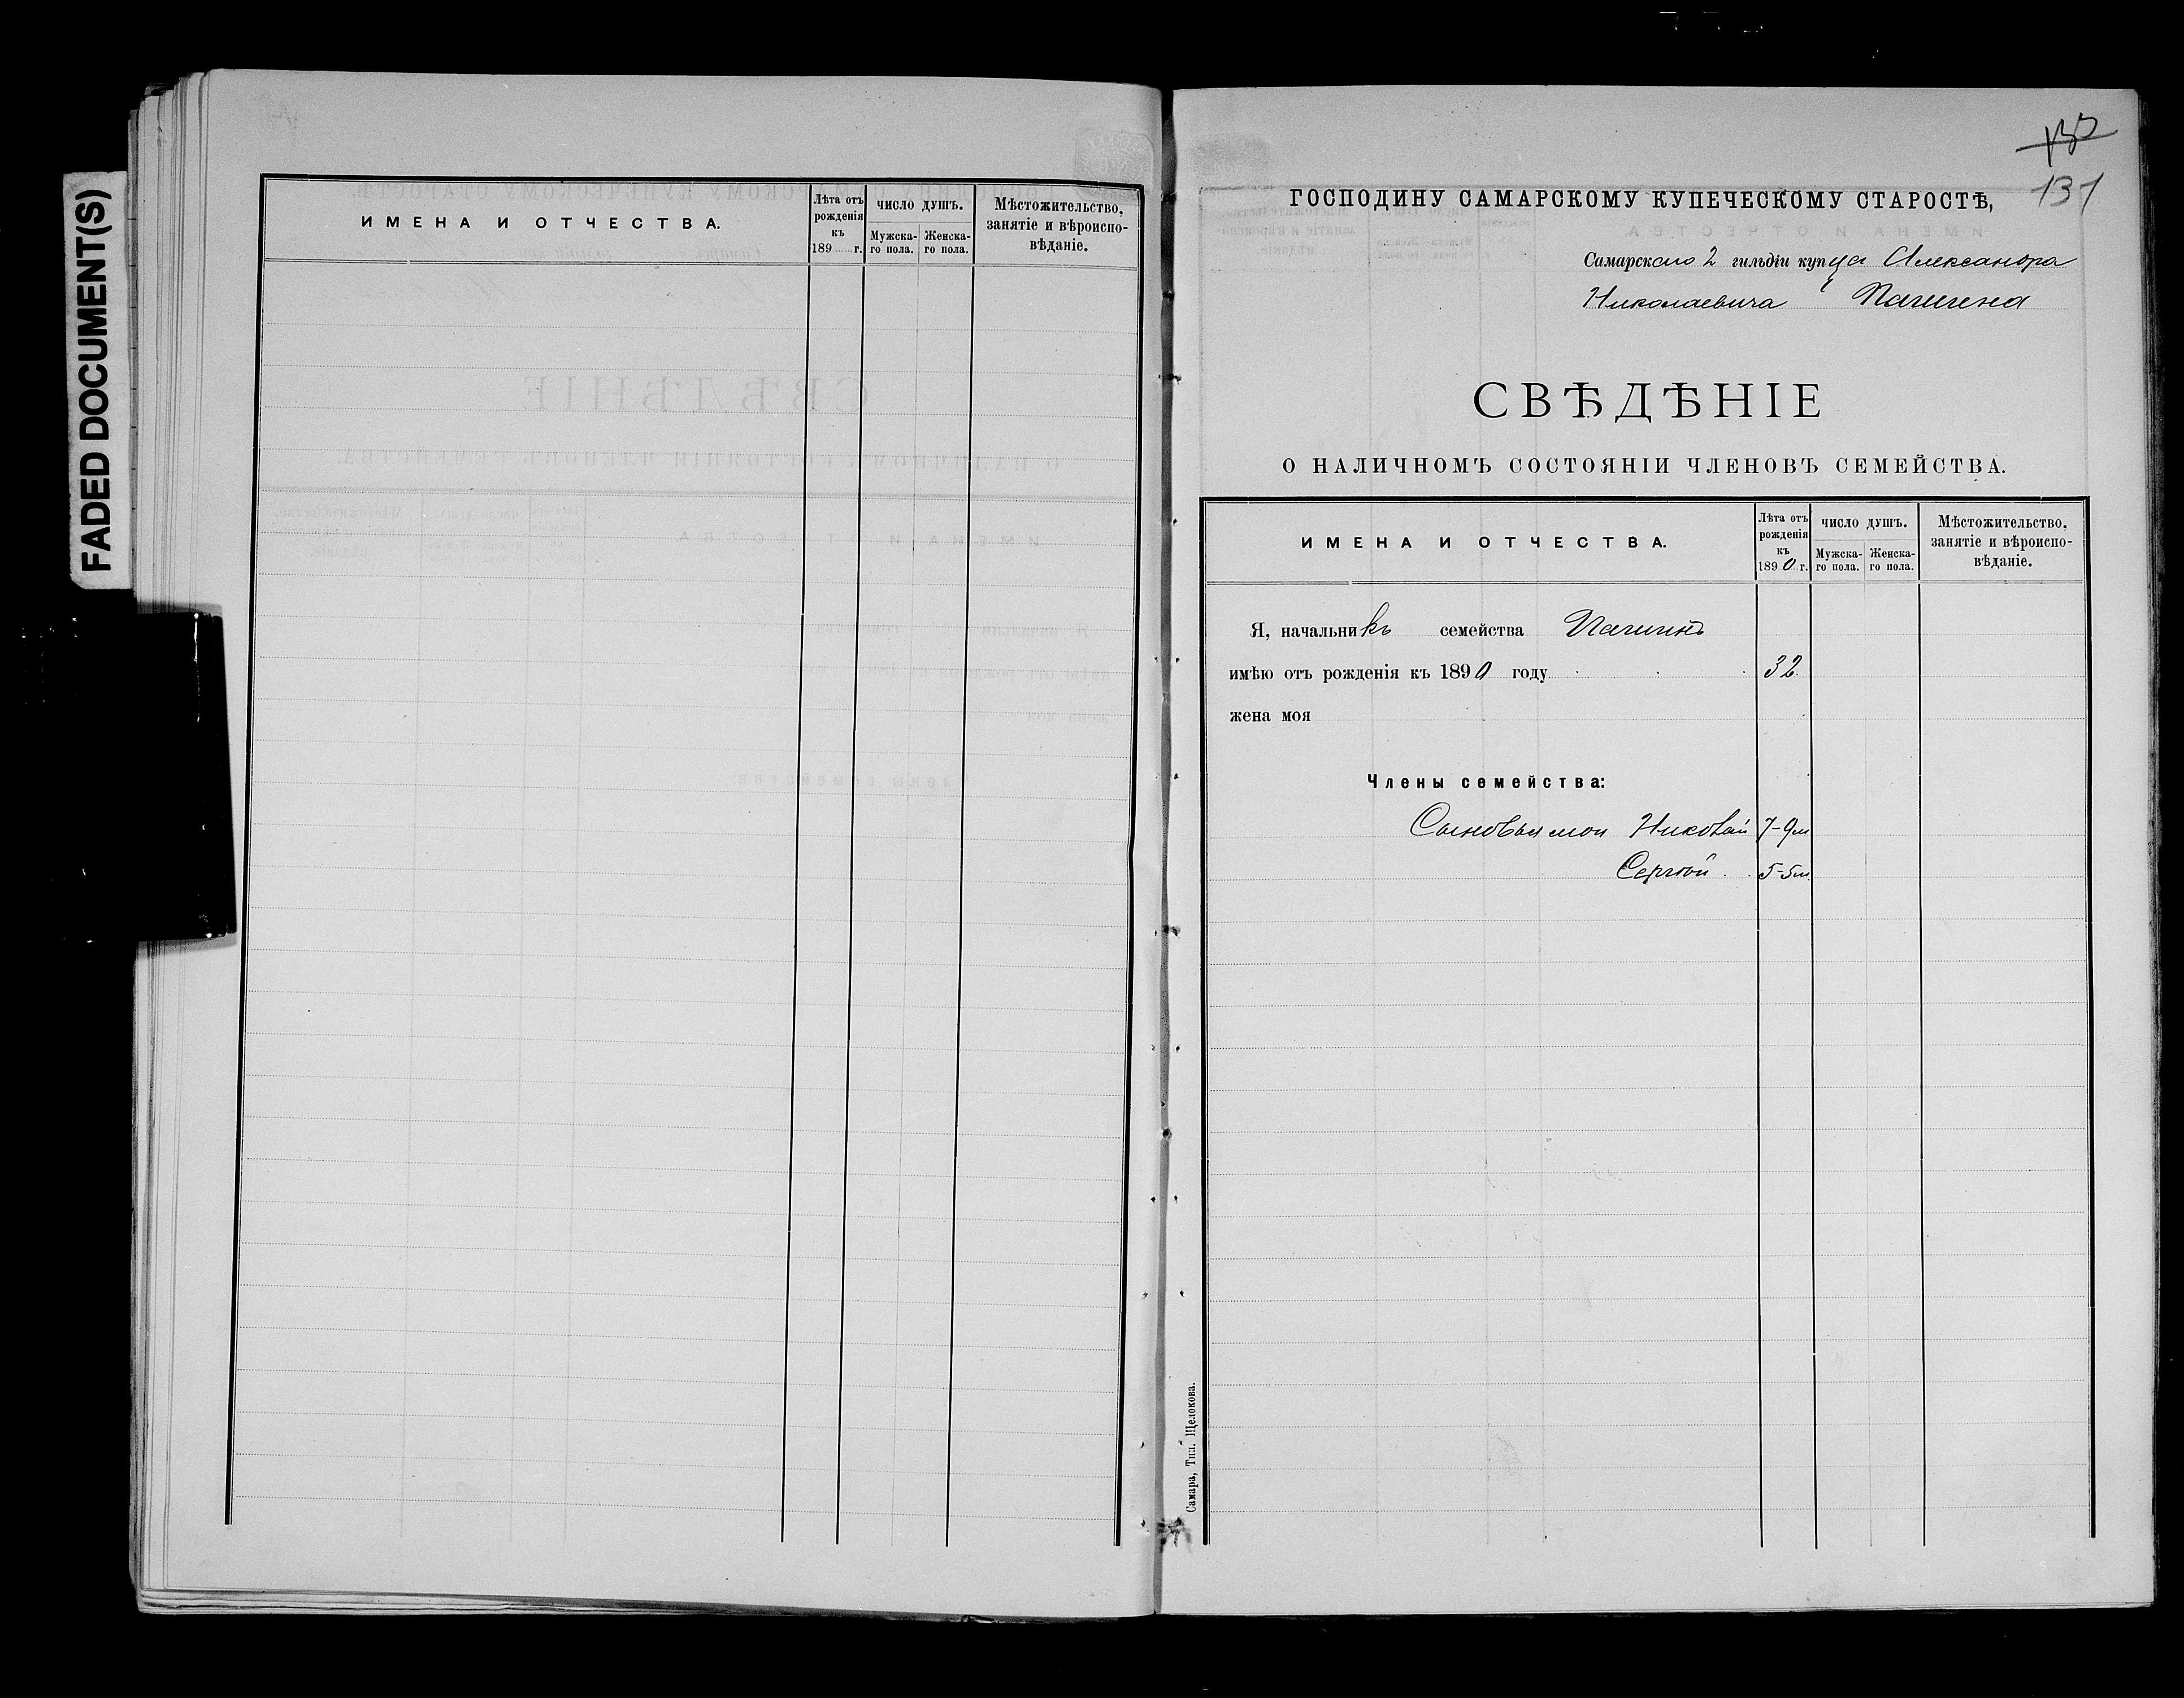 FADED DOCUMENT(S)
ИМЕНА И ОТЧЕСТВА.
Лѣта отъ рожденія къ 189 г.
ЧИСЛО ДУШЪ.
Мужска-го пола.
Женска-го пола.
Мѣстожительство, занятіе и вѣроиспо-вѣданіе.
131
ГОСПОДИНУ САМАРСКОМУ КУПЕЧЕСКОМУ СТАРОСТѢ,
Самарскаго 2 гильдіи купца Александра
Николаевича
СВѢДѢНІЕ
О НАЛИЧНОМЪ СОСТОЯНІИ ЧЛЕНОВЪ СЕМЕЙСТВА.
ИМЕНА И ОТЧЕСТВА.
Лѣта отъ рожденія къ 1890 г.
ЧИСЛО ДУШЪ.
Мужска-го пола.
Женска-го пола.
Мѣстожительство, занятіе и вѣроиспо-вѣданіе.
Я, начальникъ семейства
имѣю отъ рожденія къ 1890 году 32
жена моя
Члены семейства:
Сыновья мои Николай 7-9м
Сергѣй 5-5м
Самара, Тип. Щелокова.